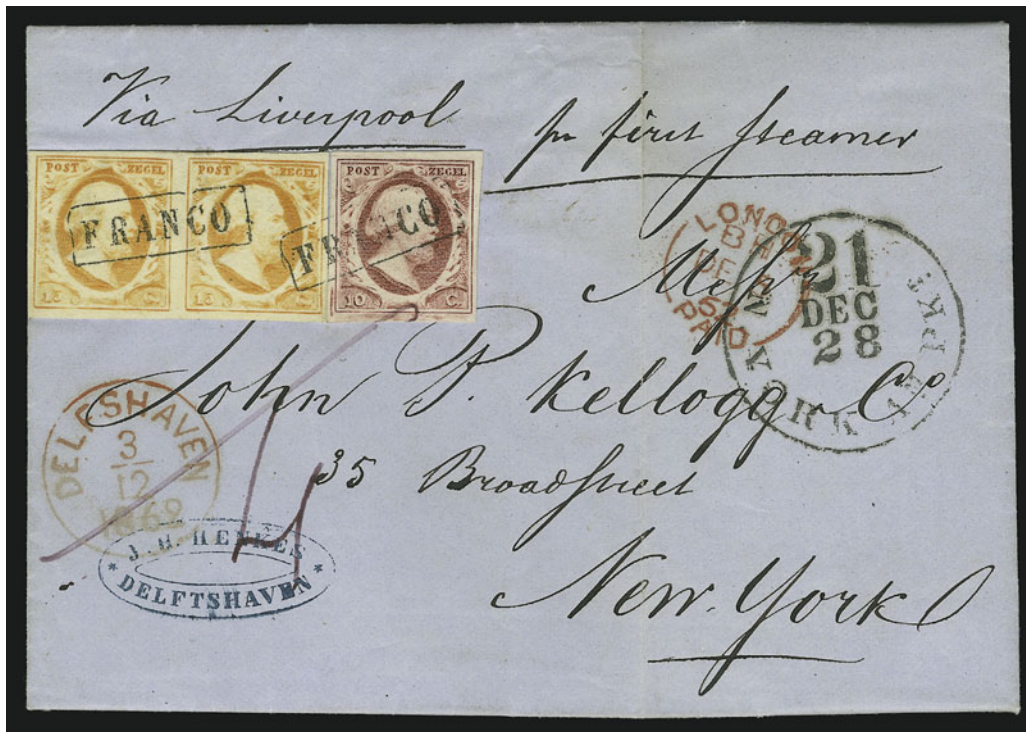 Via Liverpool
pr first steamer
POST ZEGEL
POST ZEGEL
POST ZEGEL
FRANCO
FRANCO
15
15
10 C.
LONDON
DE
PAID
21
DEC
28
YORK
PKT
Messrs
John P. Kellogg & Co
35 Broadstreet
New-York
DELFSHAVEN
3
12
1862
J. H. HENKES
DELFTSHAVEN